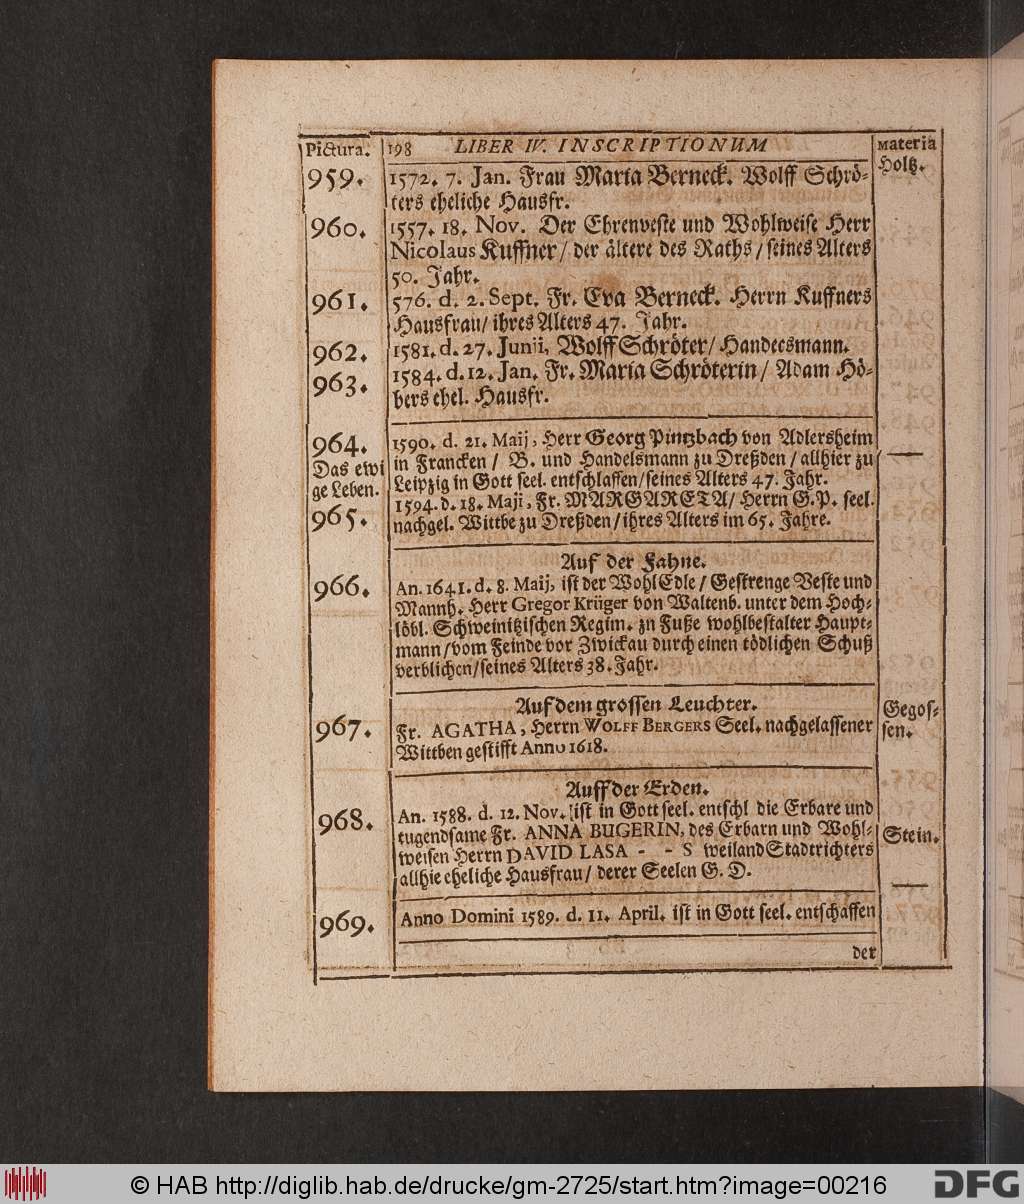 Pictura. 198 LIBER IV. INSCRIPTIONUM Materia
959. 1572. 7. Jan. Frau Maria Berneck. Wolff Schrö- Holtz.
ters eheliche Hausfr.
960. 1557. 18. Nov. Der Ehrenveste und Wohlweise Herr
Nicolaus Kuffner / der ältere des Raths / seines Alters
50. Jahr.
961. 576. d. 2. Sept. Fr. Eva Berneck. Herrn Kuffners
Hausfrau / ihres Alters 47. Jahr.
962. 1581. d. 27. Junii, Wolff Schröter / Handeesmann.
963. 1584. d. 12. Jan. Fr. Maria Schröterin / Adam Hö-
bers ehel. Hausfr.
964. 1590. d. 21. Maij, Herr Georg Pintzbach von Adlersheim
Das ewi in Francken / B. und Handelsmann zu Dreßden / allhier zu
ge Leben. Leipzig in Gott seel. entschlaffen / seines Alters 47. Jahr.
965. 1594. d. 18. Maji, Fr. MARGARETA / Herrn G. P. seel.
nachgel. Wittbe zu Dreßden / ihres Alters im 65. Jahre.
Auf der Fahne.
966. An. 1641. d. 8. Maij, ist der WohlEdle / Gestrenge Veste und
Mannh. Herr Gregor Krüger von Waltenb. unter dem Hoch-
löbl. Schweinitzischen Regim. zn Fuße wohlbestalter Haupt-
mann / vom Feinde vor Zwickau durch einen tödlichen Schuß
verblichen / seines Alters 38. Jahr.
Auf dem grossen Leuchter. Gegos-
967. Fr. AGATHA, Herrn WOLFF BERGERS Seel. nachgelassener sen.
Wittben gestifft Anno 1618.
Auff der Erden.
968. An. 1588. d. 12. Nov. ist in Gott seel. entschl die Erbare und
tugendsame Fr. ANNA BUGERIN, des Erbarn und Wohl- Stein.
weisen Herrn DAVID LASA - - S weiland Stadtrichters
allhie eheliche Hausfrau / derer Seelen G. D.
969. Anno Domini 1589. d. 11. April. ist in Gott seel. entschaffen
der
© HAB http://diglib.hab.de/drucke/gm-2725/start.htm?image=00216 DFG